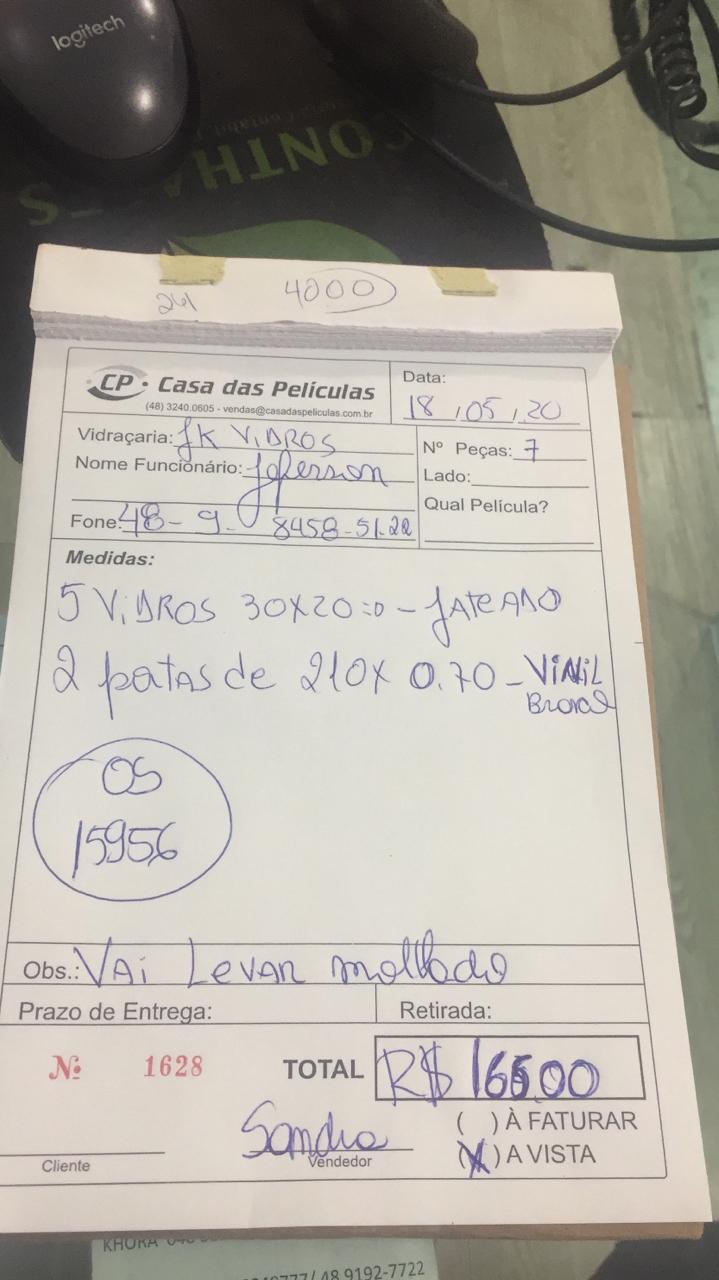 logitech
CONTHA
241 4000
CP. Casa das Películas
(48) 3240.0605 - vendas@casadaspeliculas.com.br
Data:
18 , 05 , 20
Vidraçaria: JK ViDROS
Nome Funcionário: Jeferson
Fone: 48- 9. 8458-51.22
Nº Peças: 7
Lado:
Qual Película?
Medidas:
5 ViDROS 30X20 - JATEADO
2 patas de 210X 0.70 - ViNiL
OS
15956
Obs.: VAi LEVAR molhado
Prazo de Entrega:
Retirada:
Nº 1628
TOTAL R$ 165.00
( ) À FATURAR
(X) A VISTA
Cliente
Sandra
Vendedor
KHORA
48 9192-7722